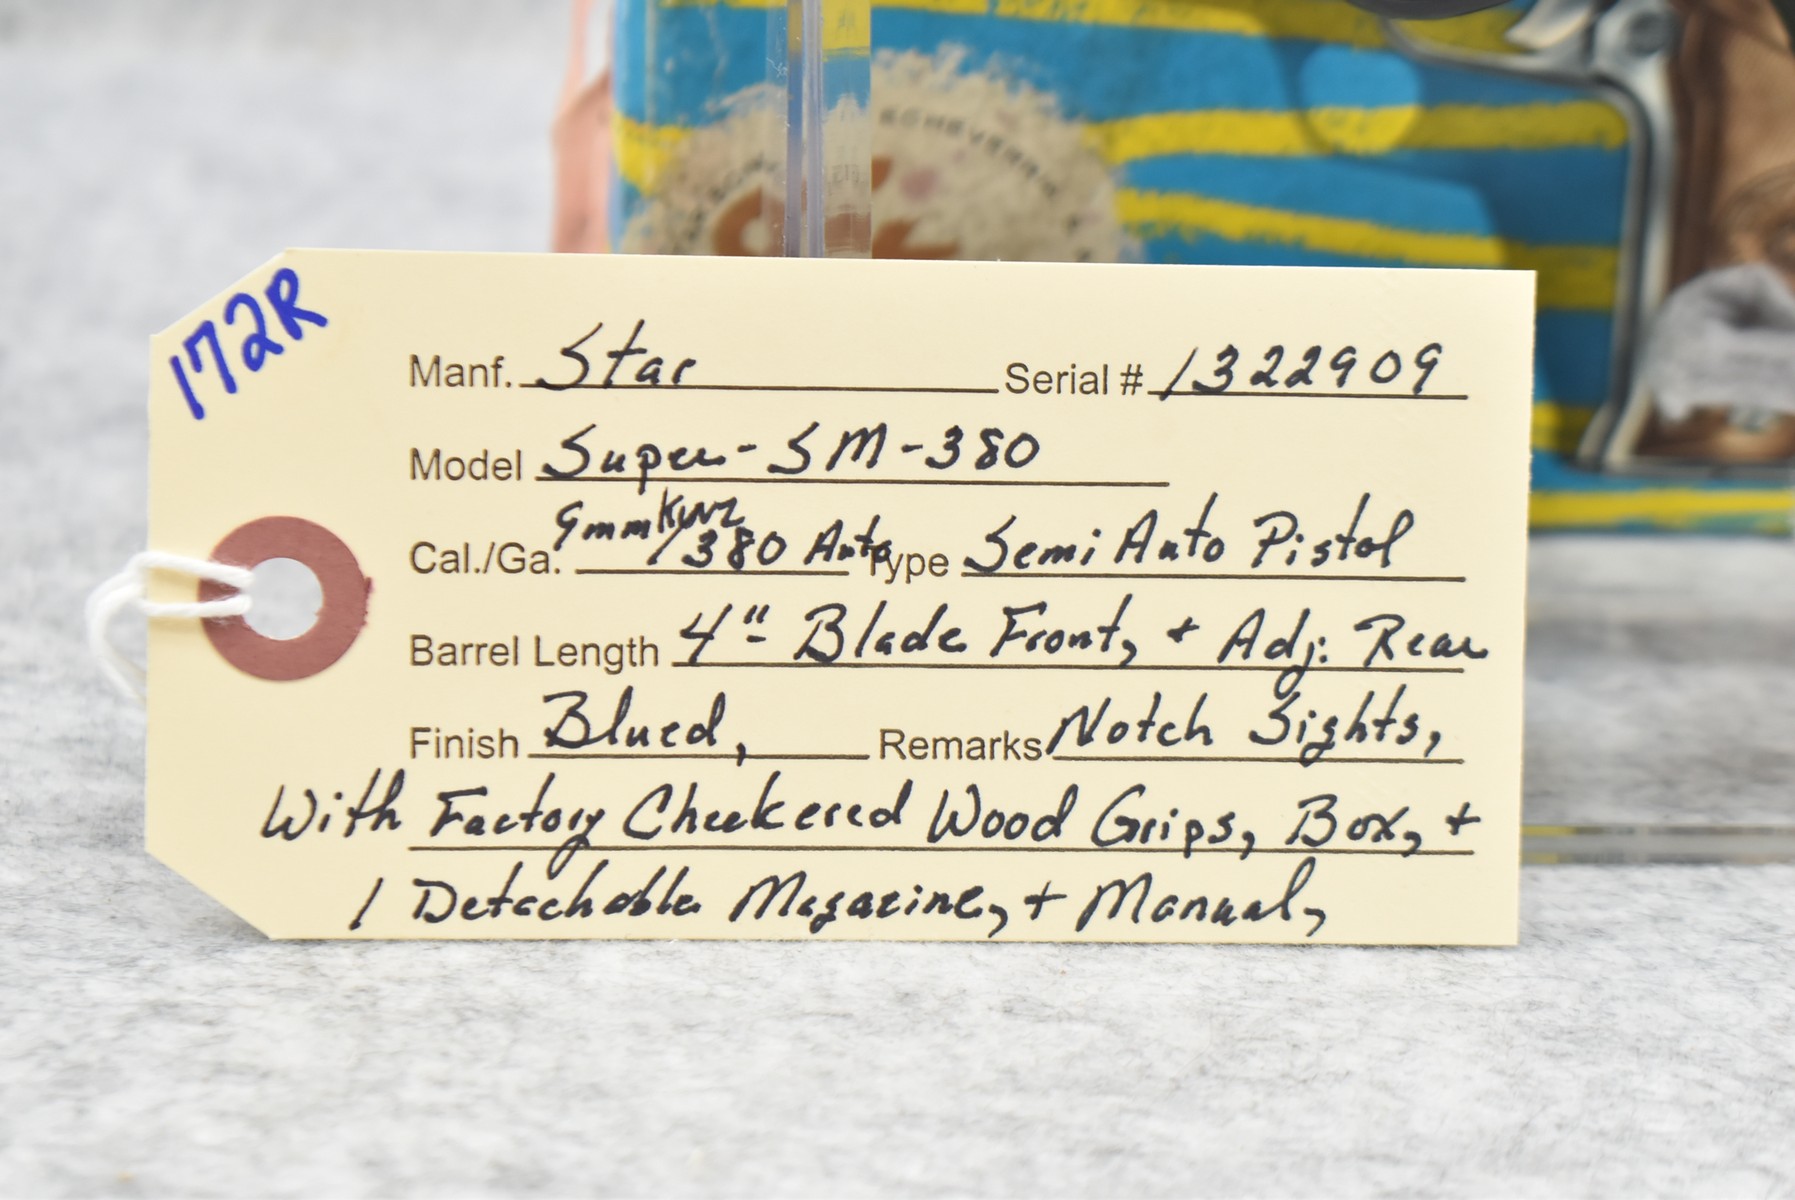 ECHEVERRIA
172R
Manf. Star Serial # 1322909
Model Super-SM-380
Cal./Ga. 9mmKurz/380 Auto Type Semi Auto Pistol
Barrel Length 4" Blade Front, + Adj. Rear
Finish Blued, Remarks Notch Sights,
With Factory Checkered Wood Grips, Box, +
1 Detachable Magazine, + Manual,